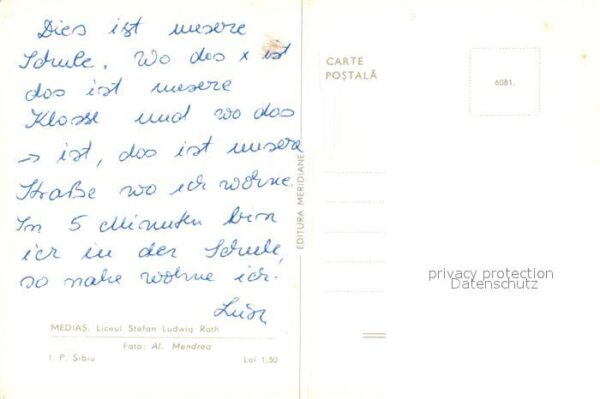 Dies ist unsere
Schule. Wo das x ist
das ist unsere
Klasse und wo das
→ ist, das ist unsere
Straße wo ich wohne.
In 5 Minuten bin
ich in der Schule,
so nahe wohne ich.
MEDIAȘ. Liceul Stefan Ludwig Roth
Foto: Al. Mendrea
I. P. Sibiu Lei 1,50
EDITURA MERIDIANE
CARTE
POȘTALĂ
6081.
privacy protection
Datenschutz